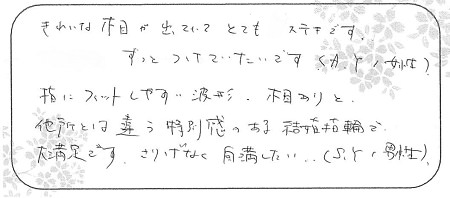 きれいな木目が出ていて とても ステキです。
ずっと つけていたいです (A.Y / 女性)
指にフィットしやすい波形、木目ありと、
他所とは違う特別感のある結婚指輪で
大満足です。さりげなく自慢したい... (S.Y / 男性)